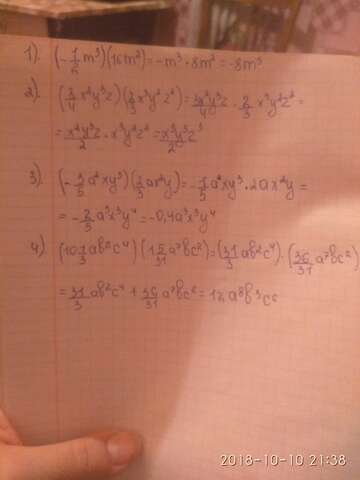 1). (-1/2 m³)(16m²) = -m³ · 8m² = -8m⁵
2). (3/4 x²y³z)(2/3 x³y²z²) = 3x²y³z/4 · 2/3 x³y²z² =
= x²y³z/2 · x³y²z² = x⁵y⁵z³/2
3). (a²xy³)(ax²y) = a²xy³ · 2ax²y =
= -2/5 a³x³y⁴ = -0,4a³x³y⁴
4). (10 1/3 ab²c⁴)(a⁷bc²) = (31/3 ab²c⁴) · (36/31 a⁷bc²)
= 31/3 ab²c⁴ + 36/31 a⁷bc² = 12a⁸b³c⁶
2018-10-10 21:38